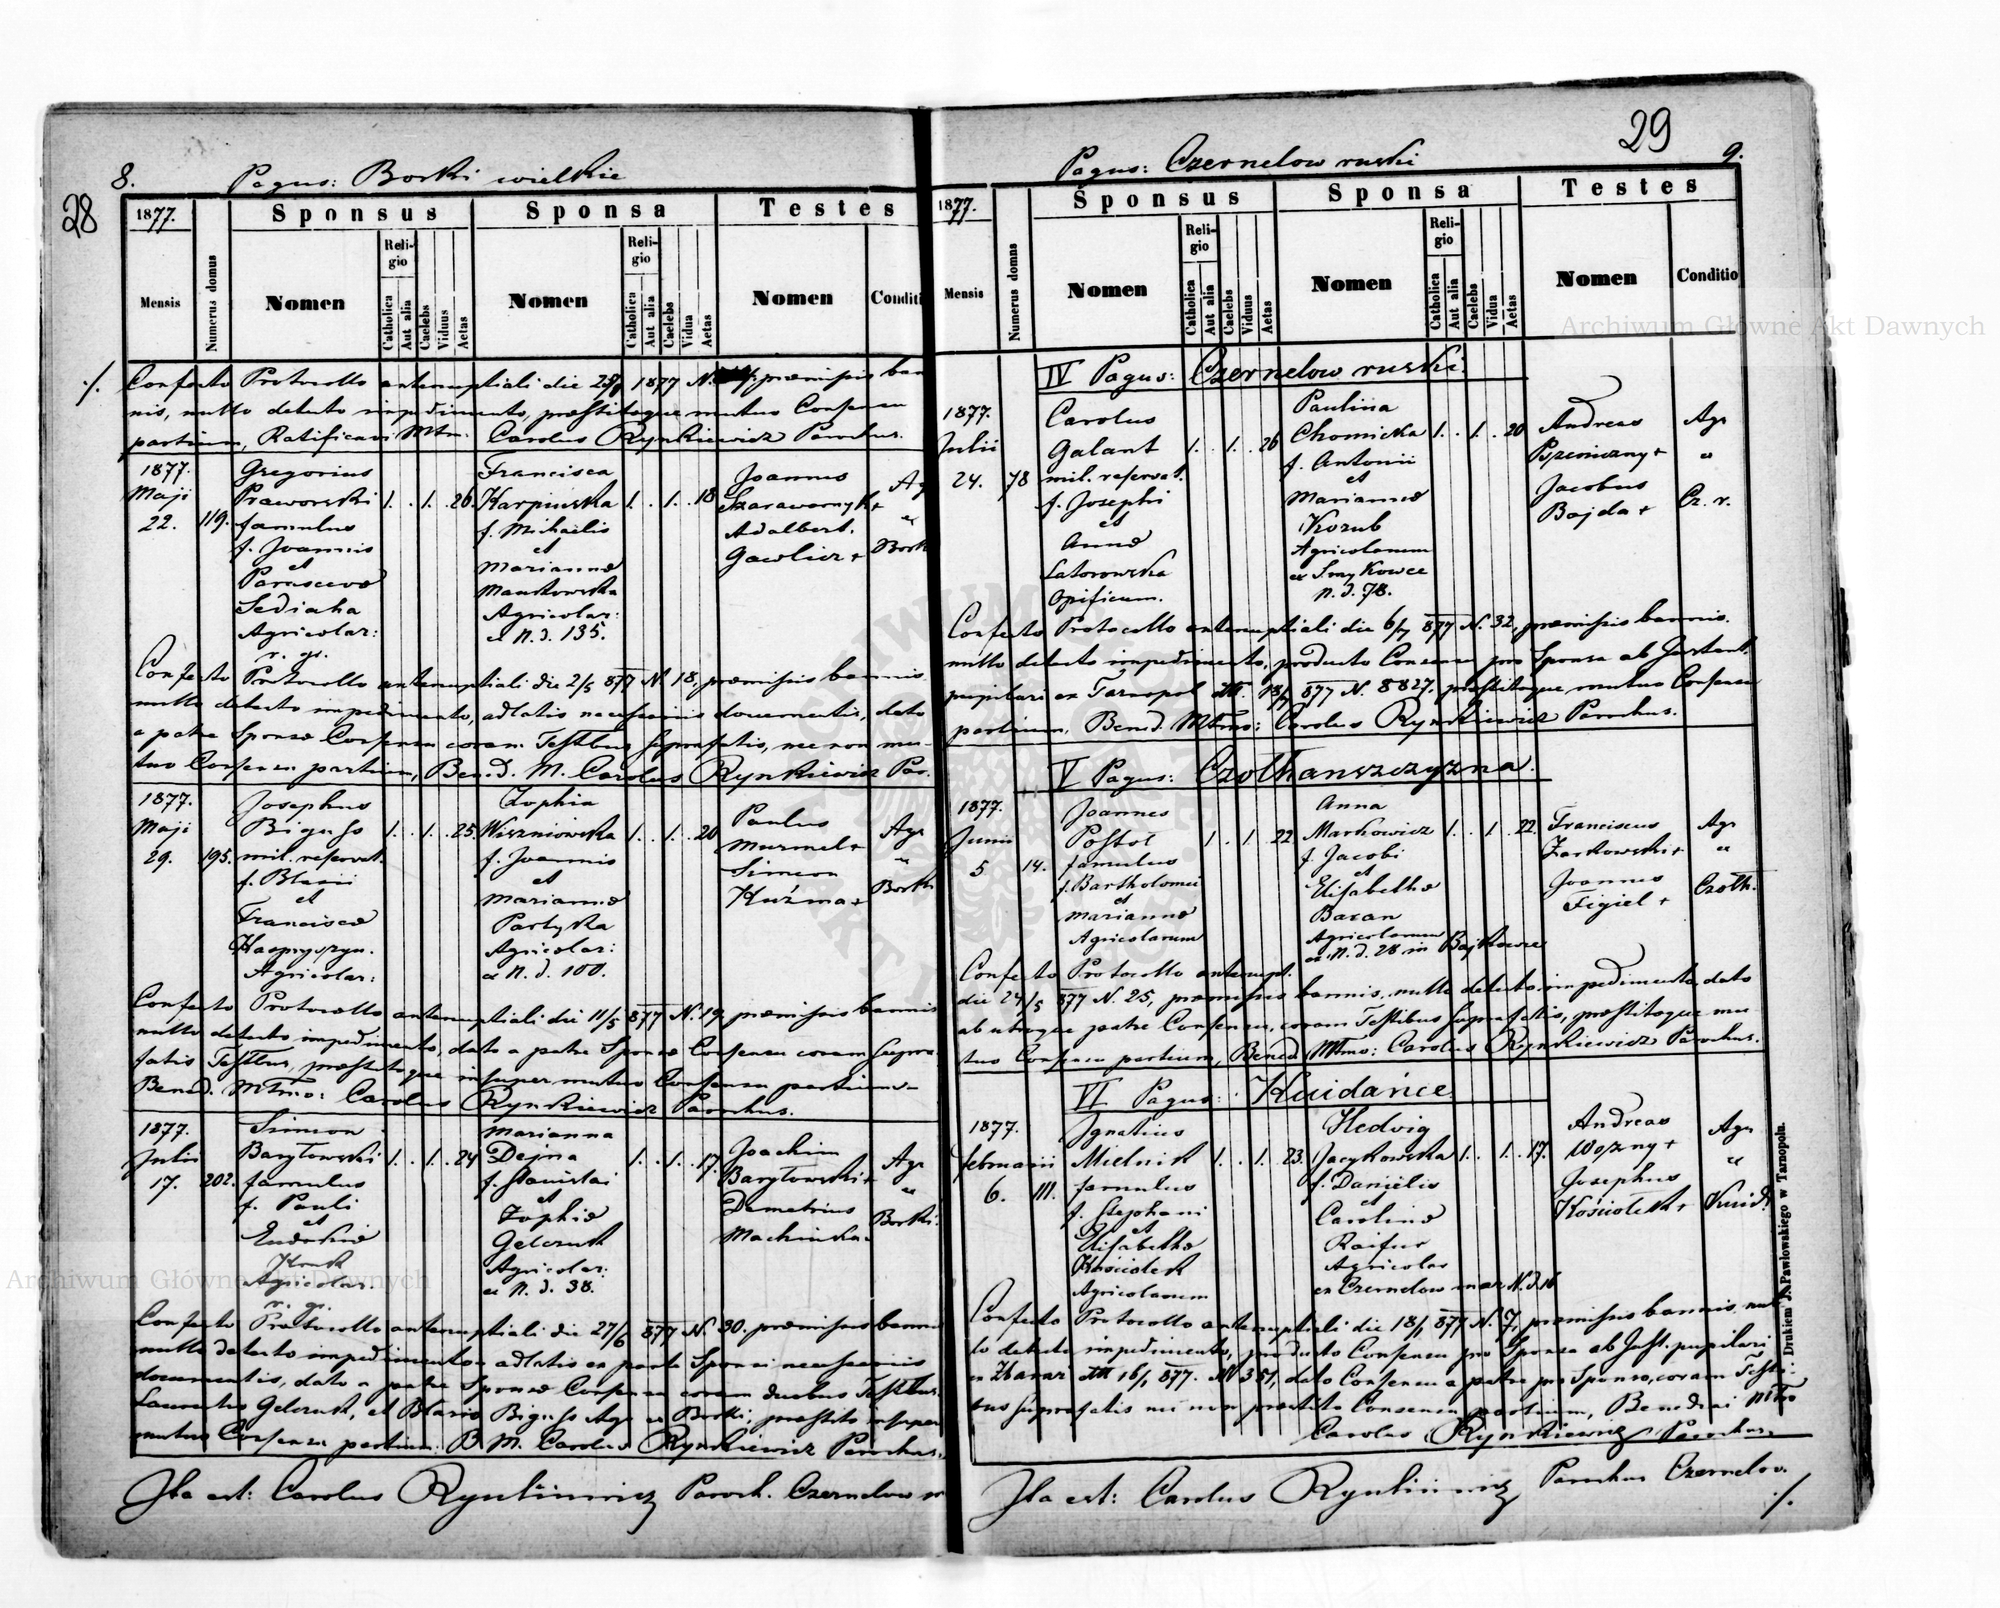 8. Pagus: Borki wielkie
28
1877.
Sponsus
Sponsa
Testes
Mensis
Numerus domus
Nomen
Religio
Catholica
Aut alia
Caelebs
Viduus
Aetas
Nomen
Religio
Catholica
Aut alia
Caelebs
Vidua
Aetas
Nomen
Conditi
./. Confecto Protocollo antenuptiali die 1877 N. præmissis ban
nis, nullo detecto impedimento, præstitoque mutuo Consensu
partium, Ratificavi Mtm. Carolus Rynkiewicz Parochus.
1877.
Maji
22.
119.
Gregorius
Praworski
famulus
f. Joannis
et
Parascevæ
Sediaha
Agricolar:
r. gr.
1. . 1. . 26.
Francisca
Karpinska
f. Michaelis
et
Mariannæ
Mankowska
Agricolar:
ex N. d. 135.
1. . 1. . 18
Joannes
Szarawarnyk +
Adalbert.
Gawlicz +
Ag
"
Bork
Confecto Protocollo antenuptiali die 2/5 877 N. 18, præmissis bannis
nullo detecto impedimento, adlatis necessariis documentis, dato
a patre Sponsæ Consensu coram Testibus suprafatis, nec non mu-
tuo Consensu partium, Bened. M. Carolus Rynkiewicz Par.
1877.
Maji
29.
195.
Josephus
Biguss
mil. reservat.
f. Blasii
et
Franciscæ
Agricolar:
1. . 1. . 25.
Zophia
Wiszniowska
f. Joannis
et
Mariannæ
Partyka
Agricolar:
ex N. d. 100.
1. . 1. . 20
Paulus
Murmel +
Simeon
Kuźma +
Agr
"
Bork
Confecto Protocollo antenuptiali die 11/5 877 N. 19, præmissis bannis
nullo detecto impedimento, dato a patre Sponsæ Consensu coram supra-
fatis Testibus, præstitoque insuper mutuo Consensu partium.-
Bened. Mtmo: Carolus Rynkiewicz Parochus.
1877.
Julii
17.
202.
Simeon
Baryłowski
famulus
f. Pauli
et
Eudokiæ
Agricolar.
r. gr.
1. . 1. . 24
Marianna
Dejna
f. Stanislai
et
Zophiæ
Gelczuk
Agricolar:
ex N. d. 38.
1. . 1. . 17.
Joachim
Baryłowski +
Demetrius
Machinka
Agr
"
Borki.
Confecto Protocollo antenuptiali die 27/6 877 N. 30. præmissis bannis
nullo detecto impedimento adlatis ex parte Sponsi necessariis
documentis, dato a patre Sponsæ Consensu coram duobus Testibus
Laurentio Gelczuk, et Blasio Biguss Agr ex Borki; præstito insuper
mutuo Consensu partium. B. M. Carolus Rynkiewicz Parochus.
Ita est: Carolus Rynkiewicz Paroch. Czernelow
29
Pagus: Czernelow ruski
9.
1877.
Sponsus
Sponsa
Testes
Mensis
Numerus domus
Nomen
Religio
Catholica
Aut alia
Caelebs
Viduus
Aetas
Nomen
Religio
Catholica
Aut alia
Caelebs
Vidua
Aetas
Nomen
Conditio
IV Pagus: Czernelow ruski.
1877.
Julii
24.
78
Carolus
Galant
mil. reservat.
f. Josephi
et
Annæ
Latorowska
Opificum.
1. . 1. . 26
Paulina
Chomicka
f. Antonii
et
Mariannæ
Kozub
Agricolarum
ex Smykowce
N. d. 78.
1. . 1. . 20
Andreas
Pszeniczny +
Jacobus
Bajda +
Agr
"
Cz. r.
Confecto Protocollo antenuptiali die 6/7 877 N. 32, præmissis bannis.
nullo detecto impedimento, producto Consensu pro Sponsa ab Instant.
pupilari ex Tarnopol 877 N. 8827, præstitoque mutuo Consensu
partium, Bened. Mtmo: Carolus Rynkiewicz Parochus.
V Pagus: Czołhanszczyzna.
1877.
Junii
5
14.
Joannes
Postoł
famulus
f. Bartholomei
et
Mariannæ
Agricolarum
1 . 1 . 22
Anna
Markowicz
f. Jacobi
et
Elisabethæ
Baran
Agricolarum
ex N. d. 28 in Bajkowce
1. . 1. . 22.
Franciscus
Żarkowski +
Joannes
Figiel +
Agr
"
Czołh.
Confecto Protocollo antenupt.
die 24/5 877 N. 25, præmissis bannis, nullo detecto impedimento, dato
ab utroque patre Consensu, coram Testibus suprafatis, præstitoque mu
tuo Consensu partium, Bened. Mtmo: Carolus Rynkiewicz Parochus.
VI Pagus: Kuidańce
1877.
Februarii
6.
111.
Ignatius
Mielnik
famulus
f. Stephani
et
Elisabethæ
Kościołek
Agricolarum
1. . 1. . 23.
Hedvig
Jacykowska
f. Danielis
et
Carolinæ
Raifur
Agricolar
ex Czernelow maz N. d. 16
1. . 1. . 17.
Andreas
Woźny +
Josephus
Kościołek +
Agr
"
Kuid.
Confecto Protocollo antenuptiali die 18/1 877 N. 7, præmissis bannis, nul
lo detecto impedimento, producto Consensu pro Sponsa ab Inst. pupilari
ex Zbaraż 16/1 877. N 351, dato Consensu a patre pro Sponso, coram Testi-
bus suprafatis nec non præstito Consensu partium, Benedixi Mtmo
Carolus Rynkiewicz Parochus.
Ita est: Carolus Rynkiewicz Parochus Czernelov.
./.
Drukiem J. Pawłowskiego w Tarnopolu.
Archiwum Główne Akt Dawnych
Archiwum Główne Akt Dawnych